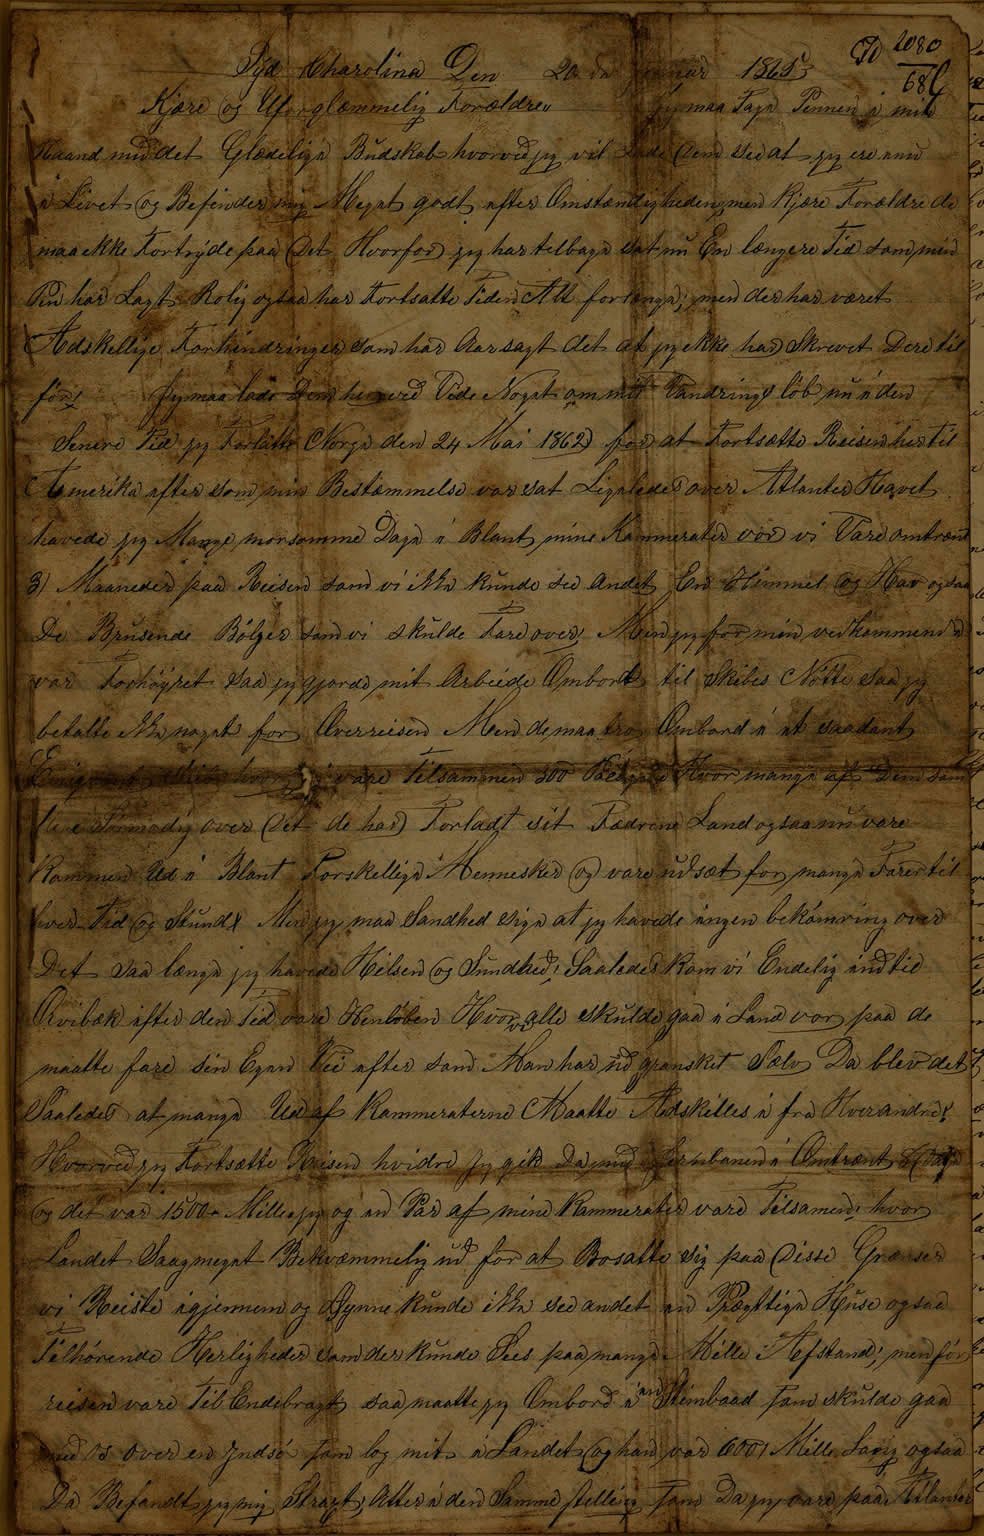 Syd Charolina Den 20 de Januar 1865 2080
68
Kjære og Uforglæmmelig Forældre Jeg maa Tage Pennen i min
Haand med det Glædelige Budskab hvorved jeg vil Lade Dem see at jeg ere enu
i Livet og Befinder mig Meget godt efter Omstændighederne men kjære Forældre de
maa ikke Fortryde paa Det Hvorfor jeg har tilbage sat nu En længere Tid som min
Pen har Lagt Rolig ogsaa har Fortsatte Tiden Alt forlænge; men der har været
Adskellige Forhindringer som har Aarsagt det at jeg ikke har Skrevet Dere til
för! Jeg maa lade Dem herved Vide Noget om mit Vandrings löb nu i den
Senere Tid jeg Forlatte Norge den 24 Mai 1862 for at Fortsætte Reisen her til
Amerika efter som min Bestæmmelse var sat Ligeledes over Atlanter Havet
havede jeg Mange morsomme Dage i Blant mine Kammerater vor vi Vare omtrent
3) Maaneder paa Reisen som vi ikke kunde see andet En Himmel og Hav ogsaa
De Brusende Bölger som vi skulde Fare over! Men jeg for min vedkommende
var Forhöyret saa jeg gjorde mit Arbeide Ombord til Skibes Nötte saa jeg
betalte ikke noget for Overreisen Men de maa tro Ombord i et saadant
vi vare Tilsammen 300 Hvor mange af Dem som
over Det de har Forladt sit Fædrene Land ogsaa nu vare
Kommen Ud i Blant Forskellige Mennesker og vare udsæt for mange Farer til
hver Tid og Stund! Men jeg maa Sandhed sige at jeg havede ingen bekömring over
Det saa længe jeg havede Helsen og Sundhed; Saaledes kom vi Endelig ind til
Qvibæk efter den Tid vare Henlöben Hvor vi alle skulde gaa i Land vor paa de
maatte fare sin Egen Vei efter som Man har ud gransket Sælv Da blev det
Saaledes at mange Ud af Kammeraterne Maatte Adskilles i fra Hverandre!
Hvorved jeg Fortsætte Reisen hvidre jeg gik Da med Jernbanen i Omtrent
og det var 1500 Mille jeg og en Par af mine Kammerater vare Tilsamen; hvor
Landet Saag meget Bekvæmmelig ud for at Bosatte sig paa Disse Grænser
vi Reiste igjennem og Gynne kunde ikke see andet en Prægttige Huse ogsaa
Tilhörende Herligheder som der kunde Sees paa mange Mille i Afstand; men för
reisen vare Til Endebragt saa maatte jeg Ombord i en Stimbaad som skulde gaa
med os over en Indsö som log mit i Landet og han var 600 Mille Lang ogsaa
Da Befandt jeg mig Stragt Atter i den Samme stelling som Da jeg vare paa Atlanter